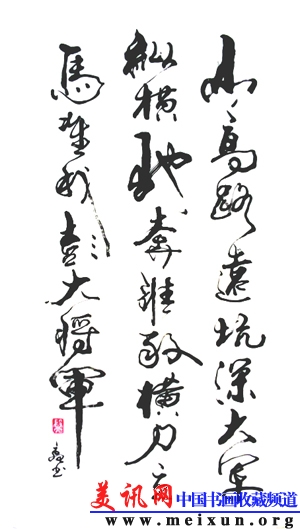 山高路遠坑深大軍
縱橫馳奔誰敢橫刀立
馬唯我彭大將軍
书
美讯网 中国书画收藏频道
www.meixun.org